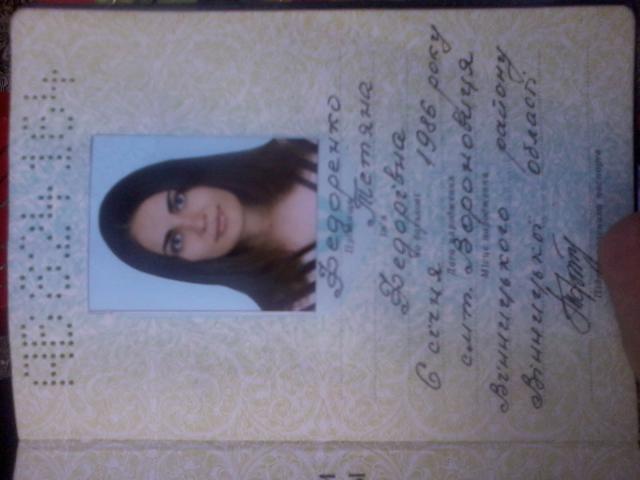 Федоренко
Прізвище
Тетяна
Ім'я
Федорівна
По батькові
6 січня 1986 року
Дата народження
смт. Вороновиця
Місце народження
Вінницького району
Вінницької області
паспорта